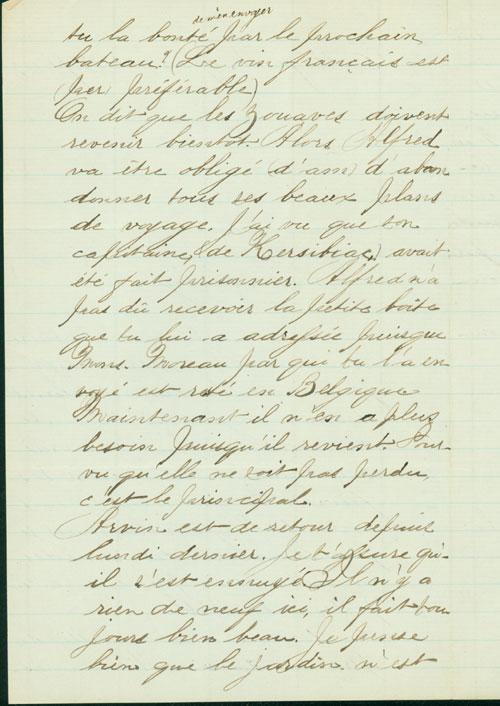 de m'en envoyer
tu la bonté par le prochain
bateau? (Le vin français est
préférable)
On dit que les Zouaves doivent
revenir bientot. Alors Alfred
va être obligé d'aban
donner tous ses beaux plans
de voyage. J'ai vu que ton
capitaine (de Kersibiac) avait
été fait prisonnier. Alfred n'a
pas dû recevoir la petite boîte
que tu lui a adressée puisque
Mons. Moreau par qui tu l'a en
voyé est resté en Belgique
Maintenant il n'en a plus
besoin puisqu'il revient. Pour-
vu qu'elle ne soit pas perdu,
c'est le principal.
Arvin est de retour depuis
lundi dernier. Je t'assure qu'-
il s'est ennuyé. Il n'y a
rien de neuf ici, il fait tou
jours bien beau. Je pense
bien que le jardin n'est